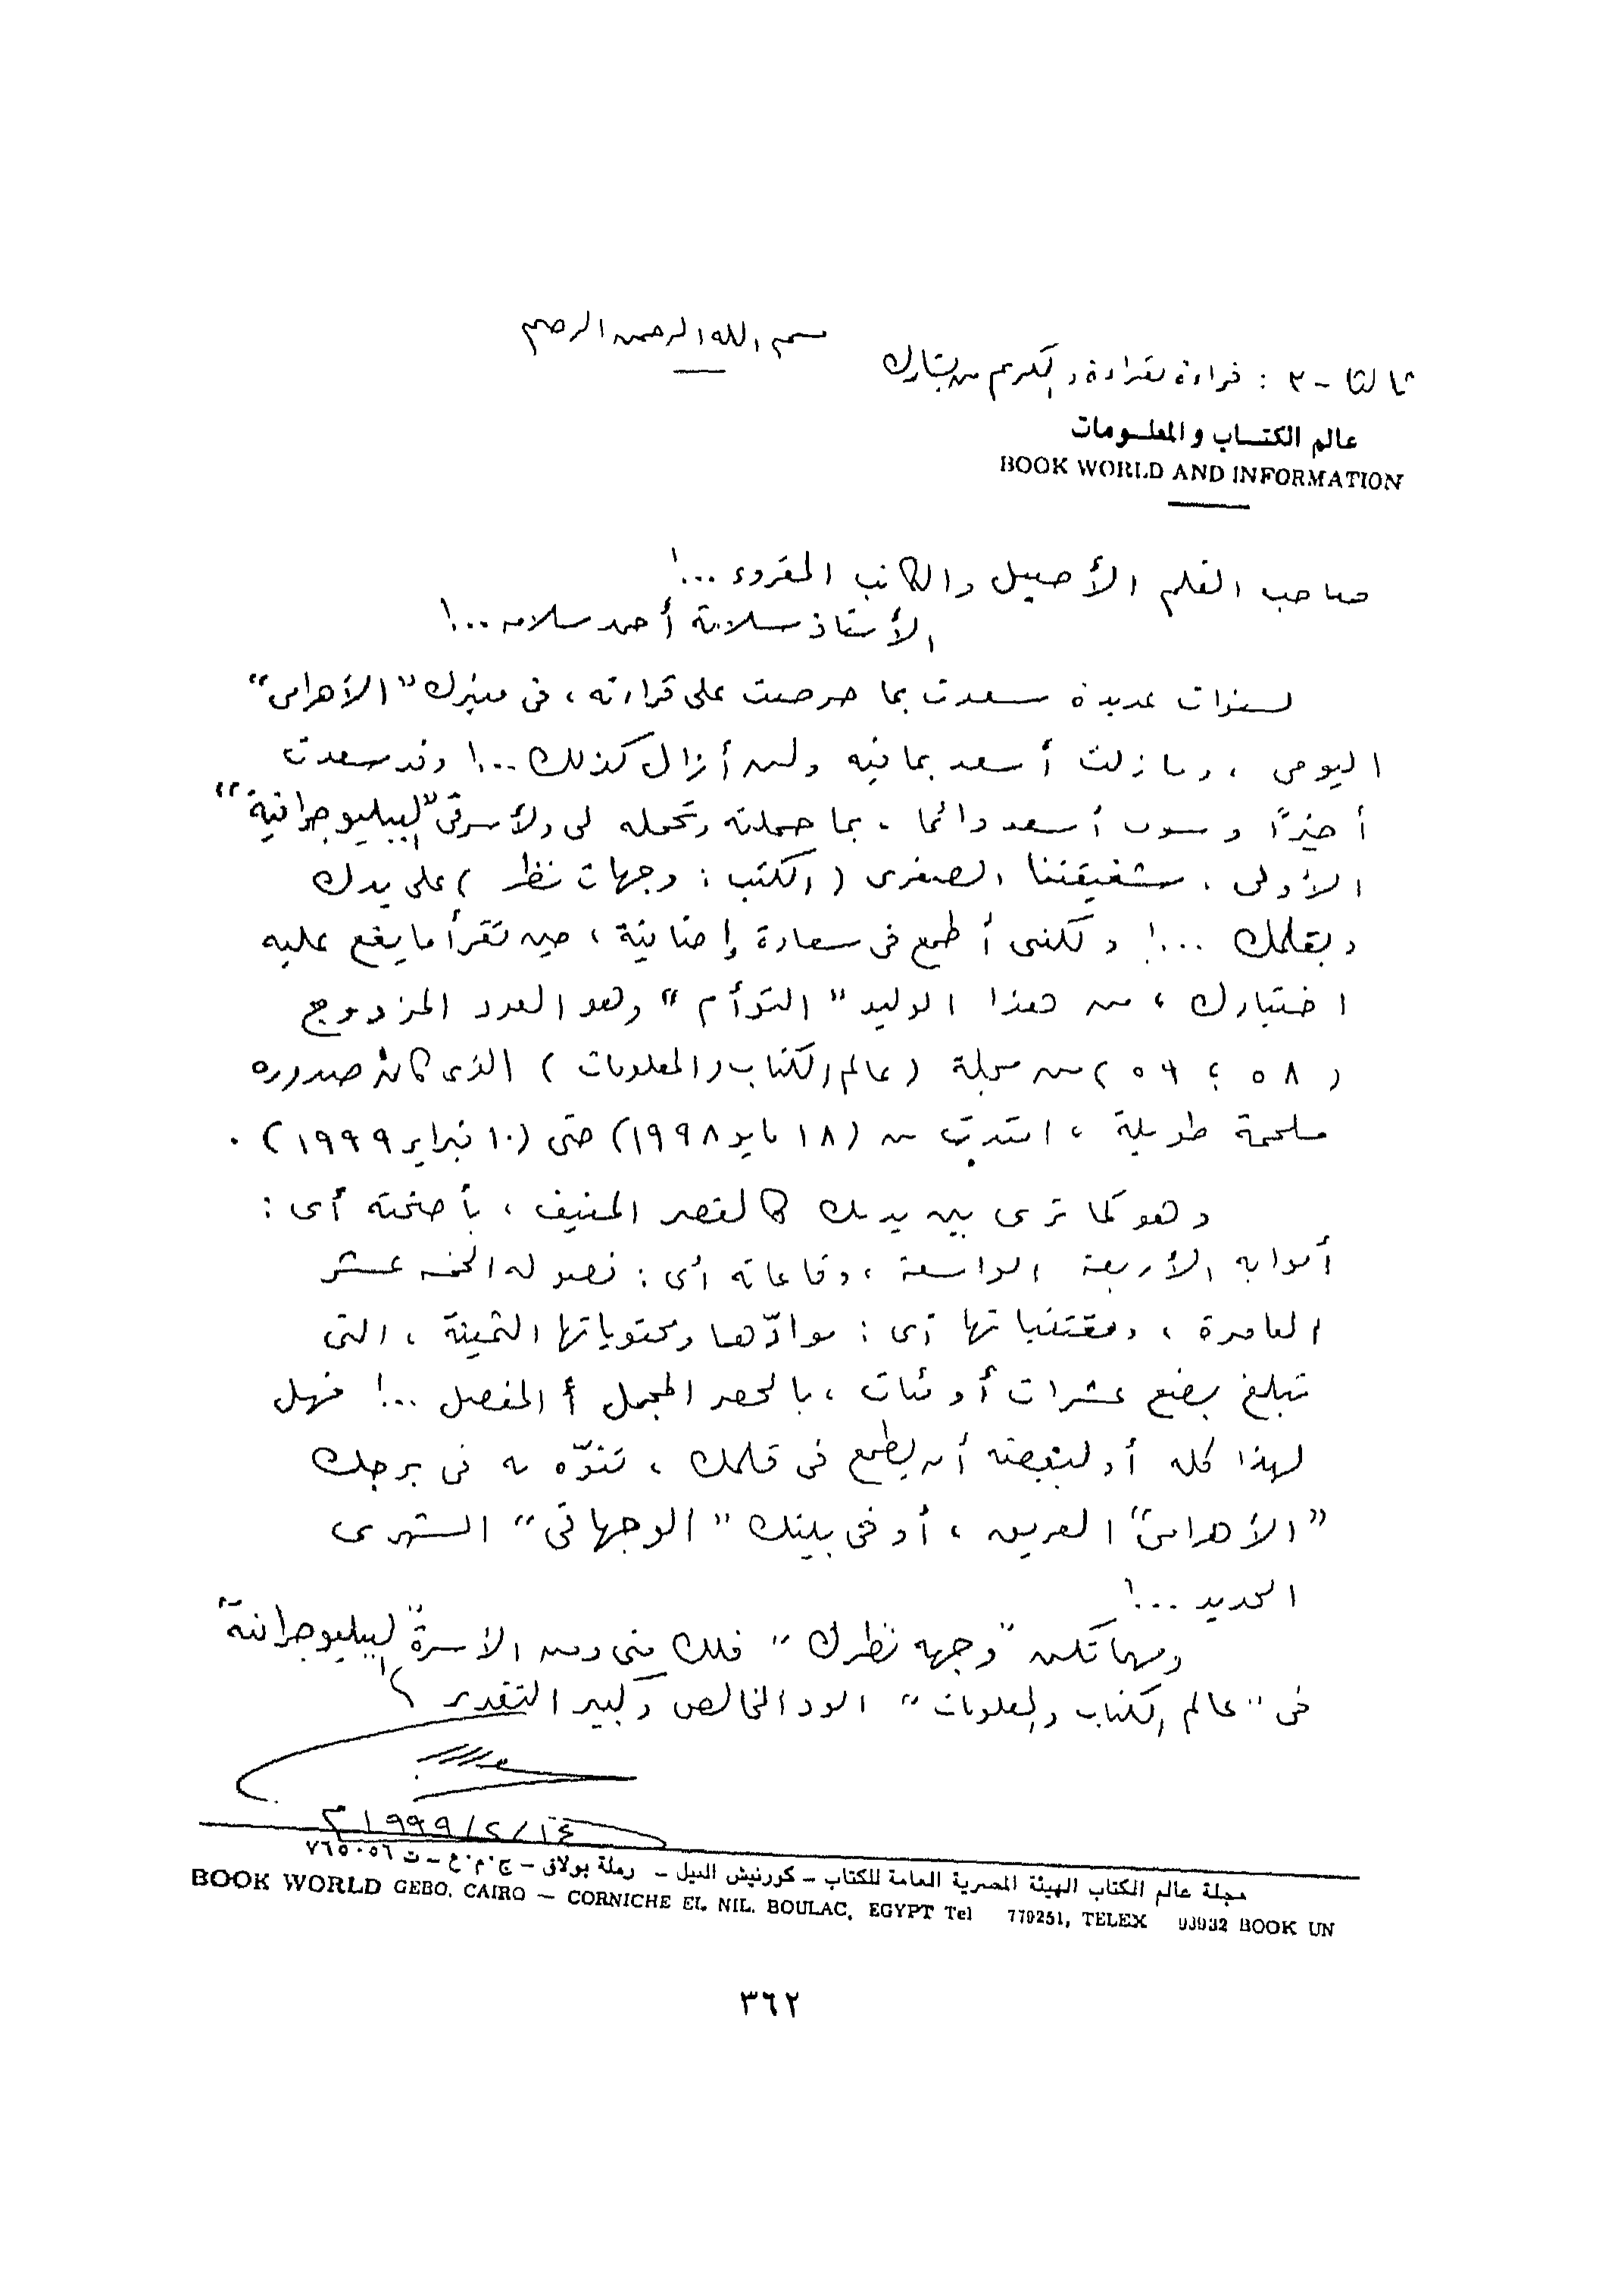 بسم الله الرحمن الرحيم
ثالثا - ٣ : قراءة بقراءة والكريم من يشارك
عالم الكتـــاب والمعلــومات
BOOK WORLD AND INFORMATION
صاحب القلم الأصيل والكاتب المقروء ...!
الأستاذ سلامة أحمد سلامه ...!
لسنوات عديدة سعدت بما حرصت على قراءته ، فى منبرك "الأهرامى"
اليومى ، وما زلت أسعد بما فيه ولن أزال كذلك ...! وقد سعدت
أخيرًا وسوف أسعد دائما ، بما حملته وتحمله لى ولأسرتى "الببليوجرافية"
الأولى ، شقيقتنا الصغرى ( الكتب : وجهات نظر ) على يدك
وبقلمك ...! ولكنى أطمع فى سعادة إضافية ، حين تقرأ ما يقع عليه
اختيارك ، من هذا الوليد "التوأم" وهو العدد المزدوج
( ٥٨ ؛ ٥٩ ) من مجلة ( عالم الكتاب والمعلومات ) الذى كان صدوره
ملحمة طويلة ، امتدت من (١٨ مايو ١٩٩٨) حتى (١٠ فبراير ١٩٩٩) .
وهو كما ترى بين يديك كالقصر المنيف ، بأجنحته أى :
أبوابه الأربعة الواسعة ، وقاعاته أى : فصوله الخمسه عشر
العامرة ، ومقتنياتها أى : موادّها ومحتوياتها الثمينة ، التى
تبلغ بضع عشرات أو مئات ، بالحصر المجمل أو المفصل ...! فهل
لهذا كله أو لبعضه أن يطمع فى قلمك ، تنوّه به فى برجك
"الأهرامى" العريق ، أو فى بيتك "الوجهاتى" الشهرى
الجديد ...!
ومهما تكن "وجهه نظرك" فلك منى ومن الأسرة "الببليوجرافية"
فى "عالم الكتاب والمعلومات" الود الخالص وكبير التقدير
١٤/٢/١٩٩٩م
مجلة عالم الكتاب الهيئة المصرية العامة للكتاب - كورنيش النيل - رملة بولاق - ج.م.ع - ت ٧٦٥٠٥٦
BOOK WORLD GEBO, CAIRO — CORNICHE EL NIL. BOULAC, EGYPT Tel 779251, TELEX 93932 BOOK UN
٣٦٢